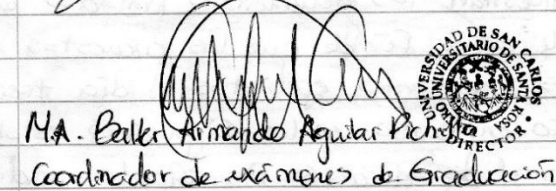 UNIVERSIDAD DE SAN CARLOS
UNIVERSITARIO DE SANTA ROSA
DIRECTOR
M.A. Armando Aguilar
Coordinador de exámenes de Graduación